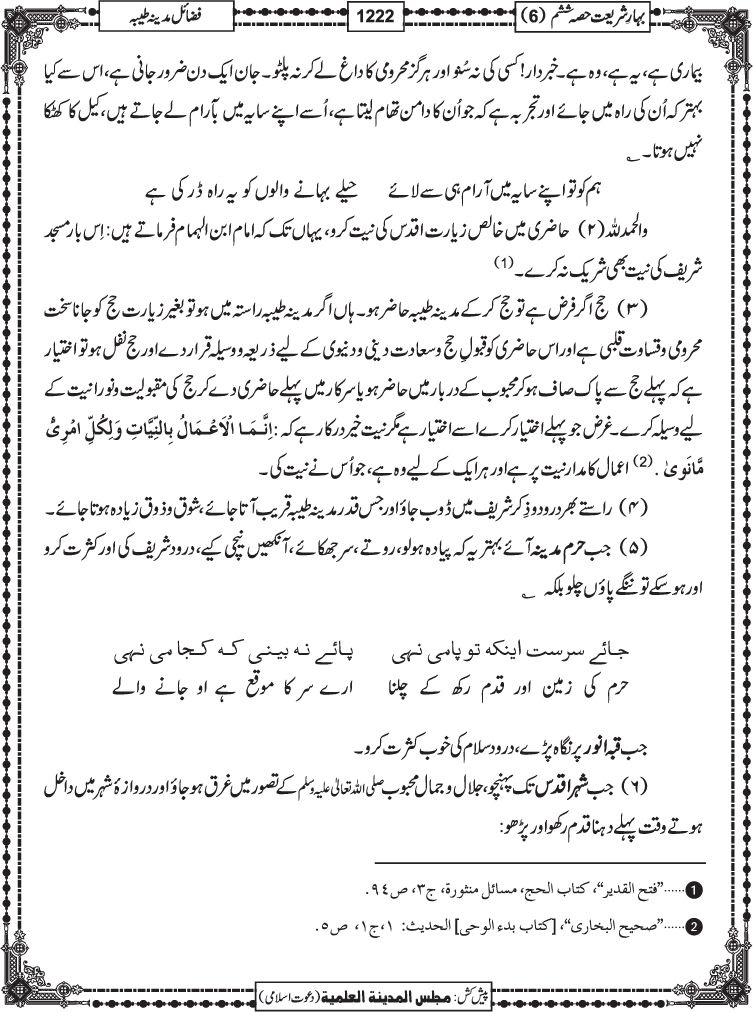 بہارِ شریعت حصہ ششم (6)
1222
فضائل مدینہ طیبہ
بیماری ہے، یہ ہے، وہ ہے۔ خبردار! کسی کی نہ سُنو اور ہرگز محرومی کا داغ لے کر نہ پلٹو۔ جان ایک دن ضرور جانی ہے، اس سے کیا
بہتر کہ اُن کی راہ میں جائے اور تجربہ ہے کہ جو اُن کا دامن تھام لیتا ہے، اُسے اپنے سایہ میں بآرام لے جاتے ہیں، کیل کا کھٹکا
نہیں ہوتا۔ ؎
ہم کو تو اپنے سایہ میں آرام ہی سے لائے حیلے بہانے والوں کو یہ راہ ڈر کی ہے
والحمدللہ (۲) حاضری میں خالص زیارت اقدس کی نیت کرو، یہاں تک کہ امام ابن الہمام فرماتے ہیں: اِس بار مسجد
شریف کی نیت بھی شریک نہ کرے۔ (1)
(۳) حج اگر فرض ہے تو حج کر کے مدینہ طیبہ حاضر ہو۔ ہاں اگر مدینہ طیبہ راستہ میں ہو تو بغیر زیارت حج کو جانا سخت
محرومی و قساوت قلبی ہے اور اس حاضری کو قبولِ حج و سعادت دینی و دنیوی کے لیے ذریعہ و وسیلہ قرار دے اور حج نفل ہو تو اختیار
ہے کہ پہلے حج سے پاک صاف ہو کر محبوب کے دربار میں حاضر ہو یا سرکار میں پہلے حاضری دے کر حج کی مقبولیت و نورانیت کے
لیے وسیلہ کرے۔ غرض جو پہلے اختیار کرے اسے اختیار ہے مگر نیت خیر درکار ہے کہ: اِنَّمَا الْاَعْمَالُ بِالنِّیَّاتِ وَلِکُلِّ امْرِیٍٔ
مَّانَوٰی . (2) اعمال کا مدار نیت پر ہے اور ہر ایک کے لیے وہ ہے، جو اُس نے نیت کی۔
(۴) راستے بھر درود و ذِکر شریف میں ڈوب جاؤ اور جس قدر مدینہ طیبہ قریب آتا جائے، شوق و ذوق زیادہ ہوتا جائے۔
(۵) جب حرمِ مدینہ آئے بہتر یہ کہ پیادہ ہو لو، روتے، سر جھکائے، آنکھیں نیچی کیے، درود شریف کی اور کثرت کرو
اور ہو سکے تو ننگے پاؤں چلو بلکہ ؎
جائے سرست اینکہ تو پا می نہی پائے نہ بینی کہ کجا می نہی
حرم کی زمین اور قدم رکھ کے چلنا ارے سر کا موقع ہے او جانے والے
جب قبۂ انور پر نگاہ پڑے، درود سلام کی خوب کثرت کرو۔
(۶) جب شہر اقدس تک پہنچو، جلال و جمالِ محبوب صلی اللہ تعالیٰ علیہ وسلم کے تصور میں غرق ہو جاؤ اور دروازۂ شہر میں داخل
ہوتے وقت پہلے دہنا قدم رکھو اور پڑھو:
1......”فتح القدیر“، کتاب الحج، مسائل منثورۃ، ج۳، ص۹٤.
2......”صحیح البخاری“، [کتاب بدء الوحی] الحدیث: ۱، ج۱، ص٥.
پیش کش: مجلس المدینۃ العلمیۃ (دعوتِ اسلامی)